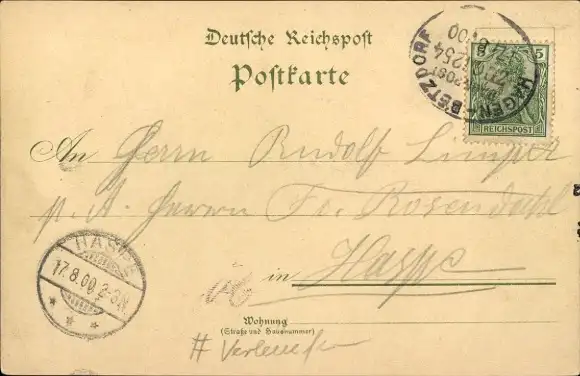 Deutsche Reichspost
Postkarte
HAGEN BETZDORF
BAHNPOST
5
REICHSPOST
An Herrn Rudolf Limper
p. A. Herrn Fr. Rosendahl
in Haspe
HASPE
17.8.00 2-3N.
Wohnung
(Straße und Hausnummer)